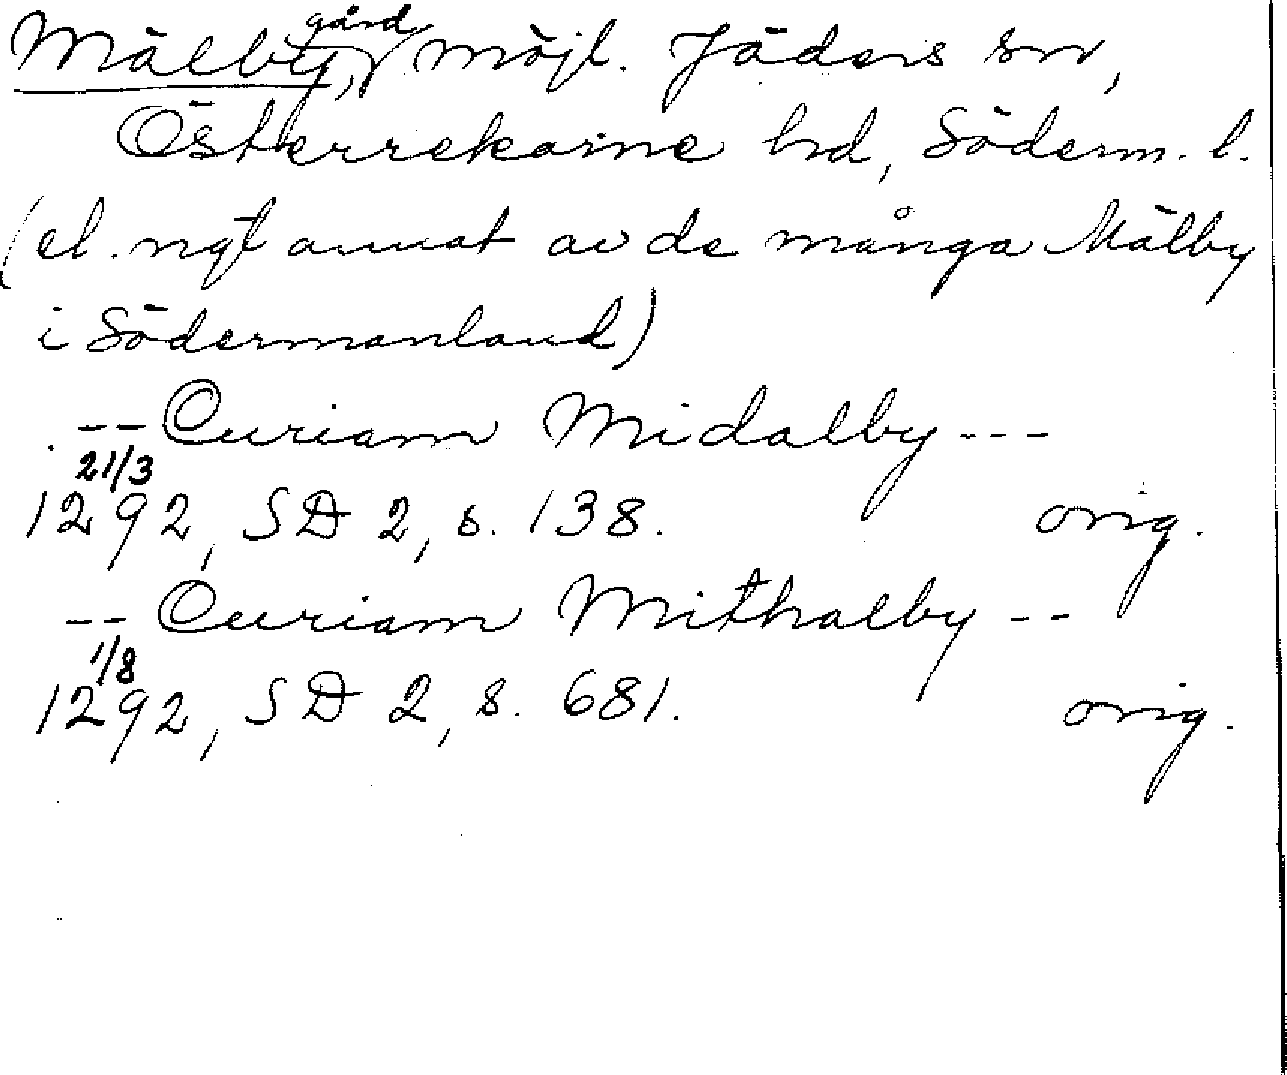 Mälby, gård, möjl. Jäders sn,
Österrekarne hd, Söderm. l.
(el. ngt annat av de många Mälby
i Södermanland)
-- Curiam Midalby ---
21/3
1292, SD 2, s. 138. orig.
-- Curiam Mithalby --
1/8
1292, SD 2, s. 681. orig.